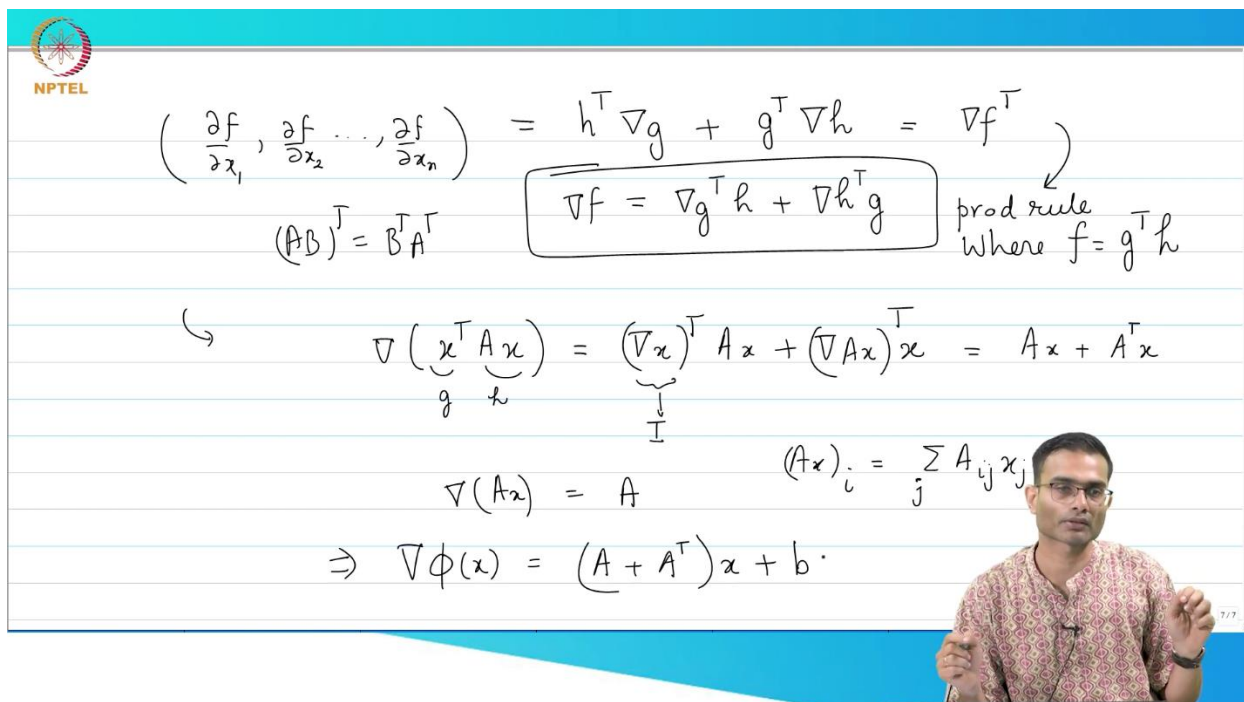 NPTEL
( ∂f/∂x₁ , ∂f/∂x₂ ..., ∂f/∂xₙ ) = hᵀ ∇g + gᵀ ∇h = ∇fᵀ
∇f = ∇gᵀ h + ∇hᵀ g
prod rule
where f = gᵀh
(AB)ᵀ = BᵀAᵀ
∇( xᵀ Ax ) = (∇x)ᵀ Ax + (∇Ax)ᵀ x = Ax + Aᵀx
g h
I
(Ax)ᵢ = Σⱼ Aᵢⱼ xⱼ
∇(Ax) = A
⇒ ∇ϕ(x) = (A + Aᵀ)x + b .
7/7